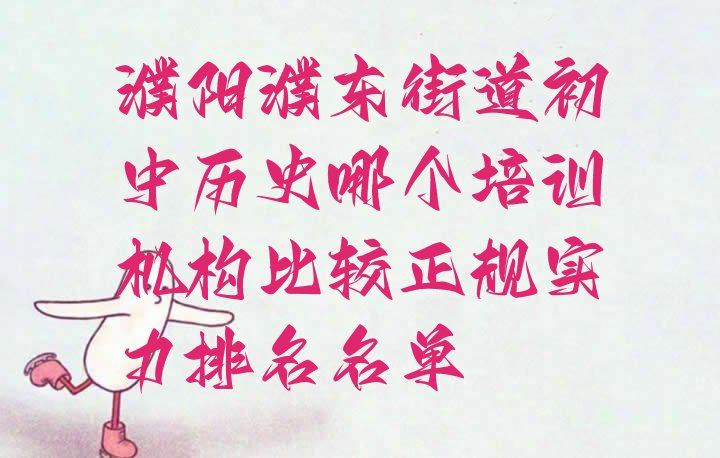 濮阳濮东街道初
中历史哪个培训
机构比较正规实
力排名名单